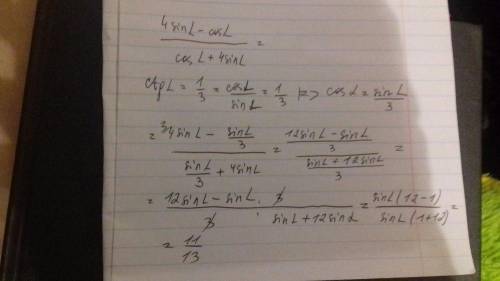 4sinL - cosL / cosL + 4sinL =
ctgL = 1/3 = cosL/sinL = 1/3 |=> cosα = sinL/3
= ³4sinL - sinL/3 / sinL/3 + 4sinL = 12sinL - sinL/3 / sinL + 12sinL/3 =
= 12sinL - sinL/3 · 3/sinL + 12sinα = sinL(12-1)/sinL(1+12) =
= 11/13